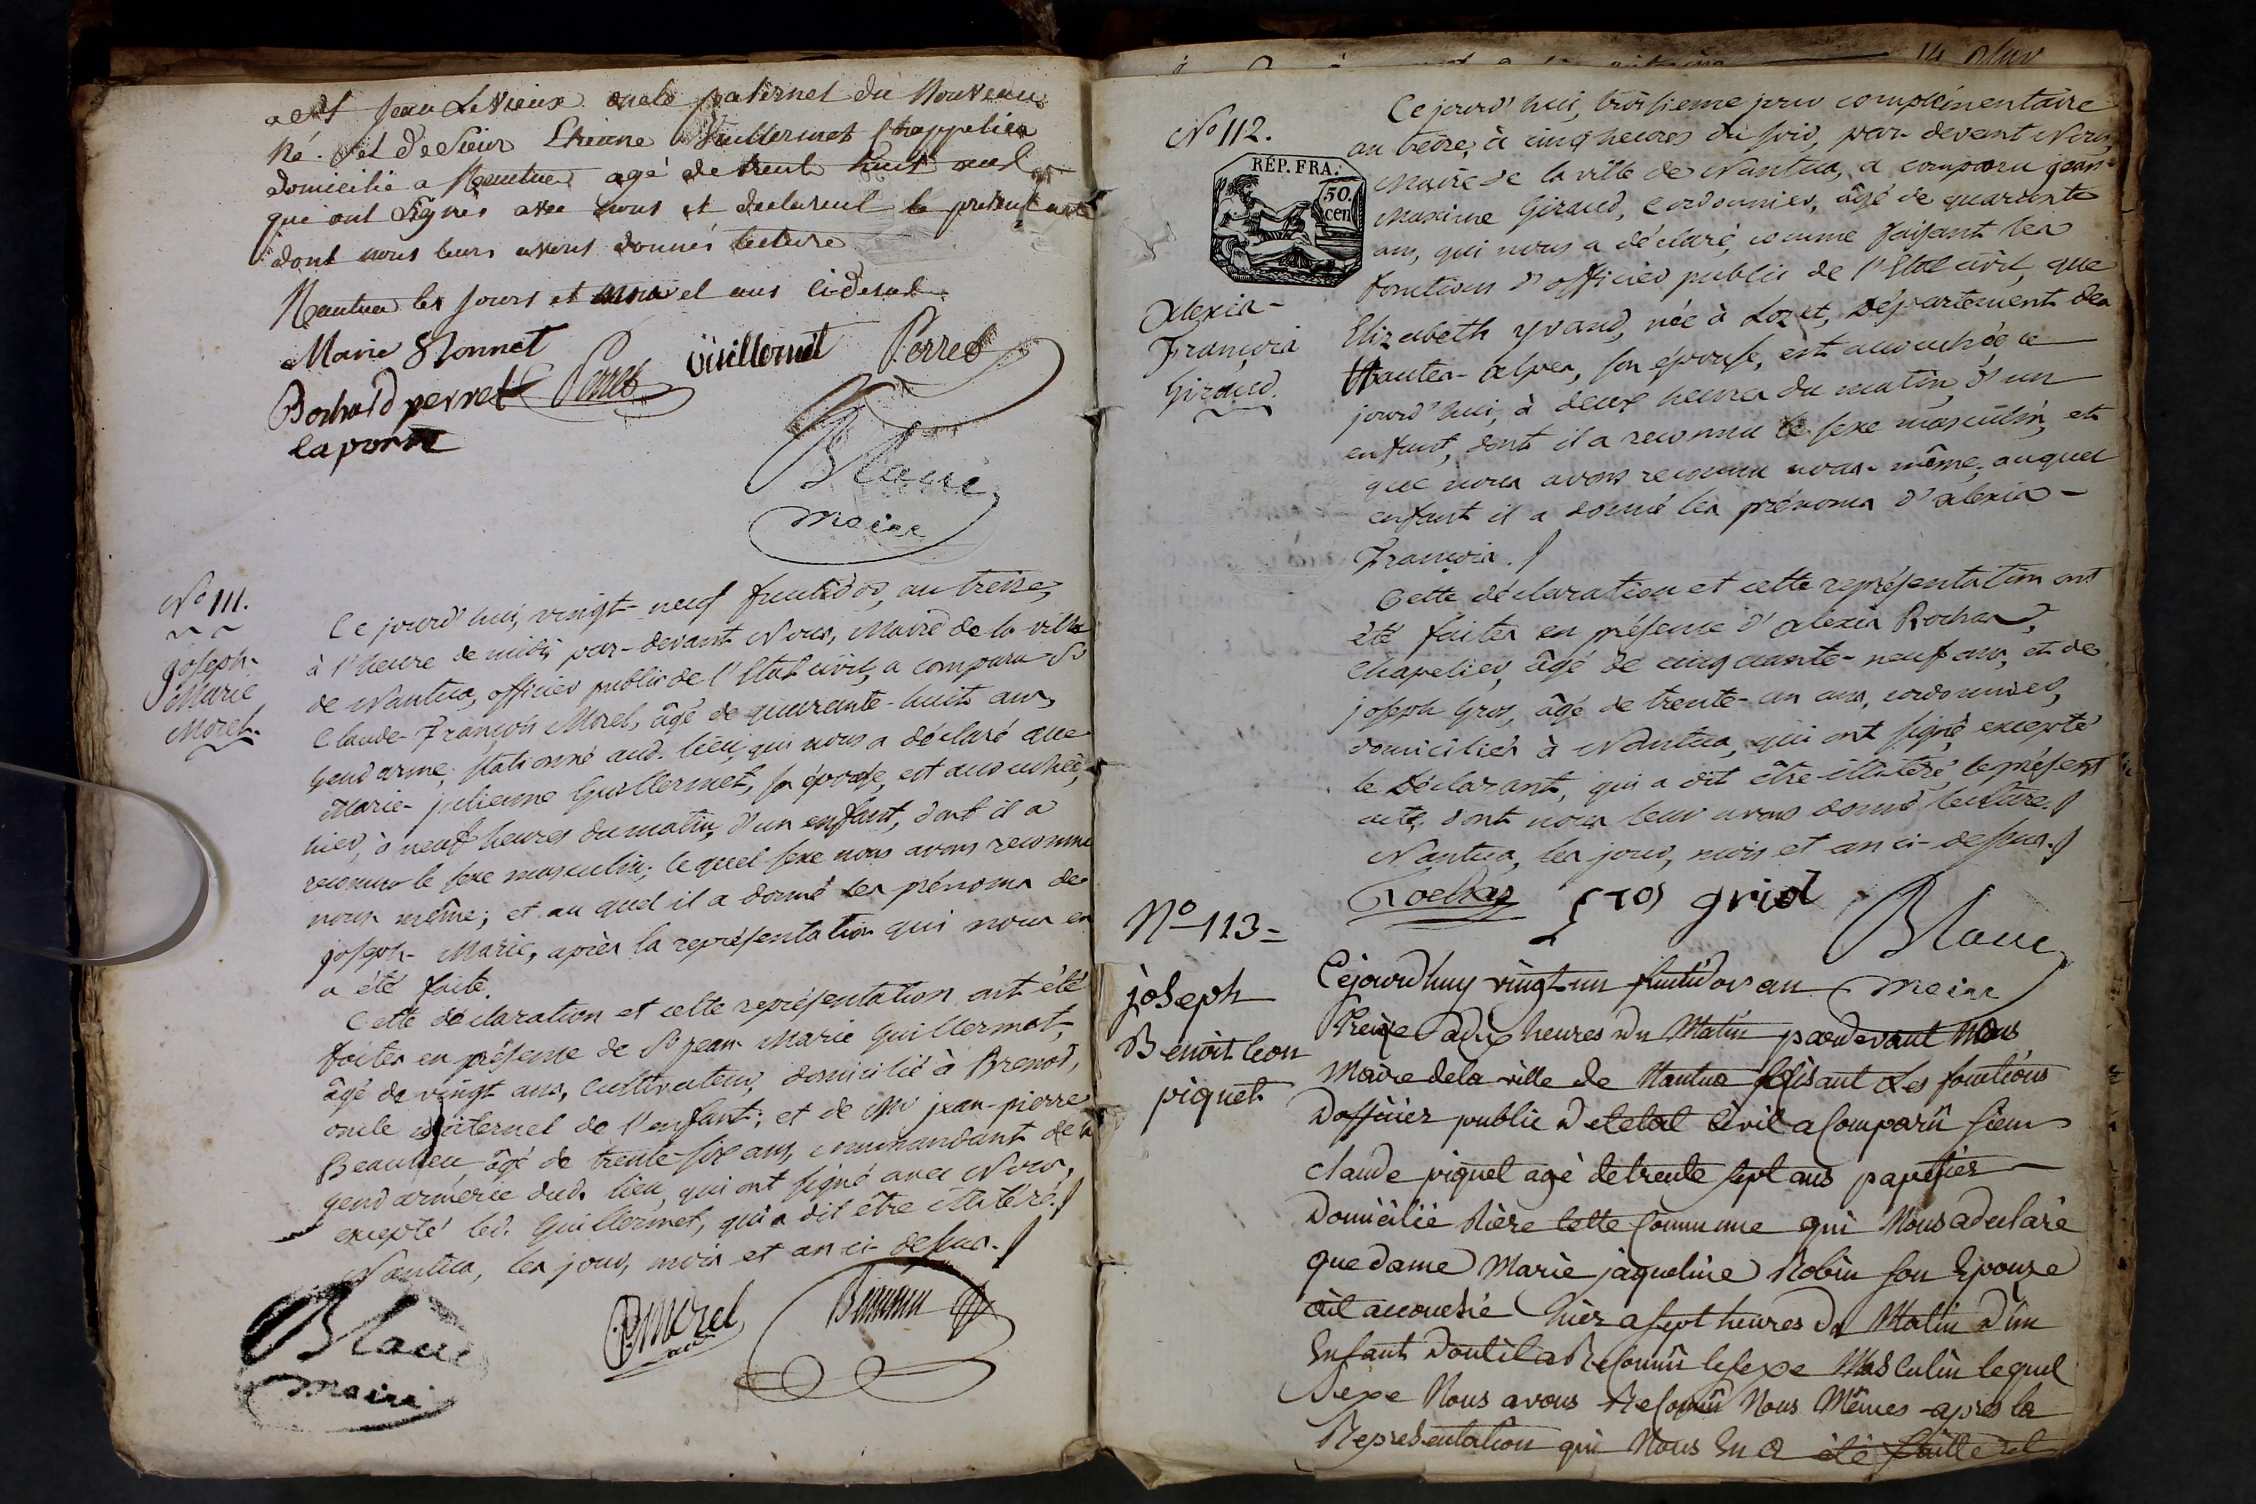 Jean Levieux oncle paternel du Nouveau
Né. et de Sieur Etienne Vuillermet Chappelier
domicilié a Nantua agé de trente huit ans
qui ont Signés avec nous et declarent le present acte
dont nous leurs avons donnés lecture
Nantua les jours et mois et ans cidesus.
Marie Bonnet
Perret
Vüillermet
Perret
Bochard perret
laporte
Blanc
maire
No 111.
Joseph-
Marie
Morel.
Ce jourd'hui, vingt-neuf fructidor, an treize,
à l'heure de midi, par-devant Nous, Maire de la ville
de Nantua, officier public de l'Etat civil, a comparu Sr
Claude-François Morel, âgé de quarante-huit ans,
gendarme, stationné aud. lieu, qui nous a déclaré que
Marie-julienne Guillermet, son épouse, est accouchée,
hier, à neuf heures du matin, d'un enfant, dont il a
reconnu le sexe masculin; lequel sexe nous avons reconnu
nous même; et au quel il a donné les prénoms de
joseph-Marie, après la représentation qui nous en
a été faite.
Cette déclaration et cette représentation ont été
faites en présence de Sr jean Marie Guillermet,
âgé de vingt ans, cultivateur, domicilié à Brenod,
oncle maternel de l'enfant; et de Mr jean-pierre
Beaulieu, âgé de trente-six ans, commandant de la
gendarmerie dud. lieu, qui ont signé avec Nous,
excepté led. Guillermet, qui a dit être illitéré.
Nantua, les jour, mois et an ci-dessus.
Blanc
maire
Morel
No 112.
RÉP. FRA.
50.
cen
Alexis-
François
Giraud.
Ce jourd'hui, troisieme jour complémentaire
an treize, à cinq heures du soir, par-devant Nous,
Maire de la ville de Nantua, a comparu jean-
Maxime Giraud, cordonnier, âgé de quarante
ans, qui nous a déclaré, comme faisant les
fonctions d'officier public de l'Etat civil, que
Elizabeth yvand, née à Lozet, département des
Hautes-alpes, son épouse, est accouchée, ce
jourd'hui, à deux heures du matin, d'un
enfant, dont il a reconnu le sexe masculin, et
que nous avons reconnu nous-même, auquel
enfant il a donné les prénoms d'alexis-
François.
Cette déclaration et cette représentation ont
été faites en présence d'alexis Rochas,
chapelier, âgé de cinquante-neuf ans, et de
joseph Gros, âgé de trente-un ans, cordonnier,
domiciliés à Nantua, qui ont signé, excepté
le déclarant, qui a dit être illitéré, le présent
acte, dont nous leur avons donné lecture.
Nantua, les jour, mois et an ci-dessus.
Rochas
gros
Blanc
maire
No 113=
joseph
Benoit leon
piquet
Cejourdhuy vingt un fructidor an
Treize a dix heures du Matin pardevant Nous
Maire dela ville de Nantua faisant Les fonctions
Dofficier public De letat Civil a Comparû Sieur
Claude piquet agé de trente sept ans papetier
Domicilié Riere Cette Commune qui Nous a declaré
que dame Marie jaqueline Robin son Epouze
est accouchée hier a sept heures du Matin d'un
Enfant Dont il a Reconnû le sexe Masculin lequel
Sexe Nous avons Reconnû Nous Mêmes après la
Representation qui Nous En a été faitte et